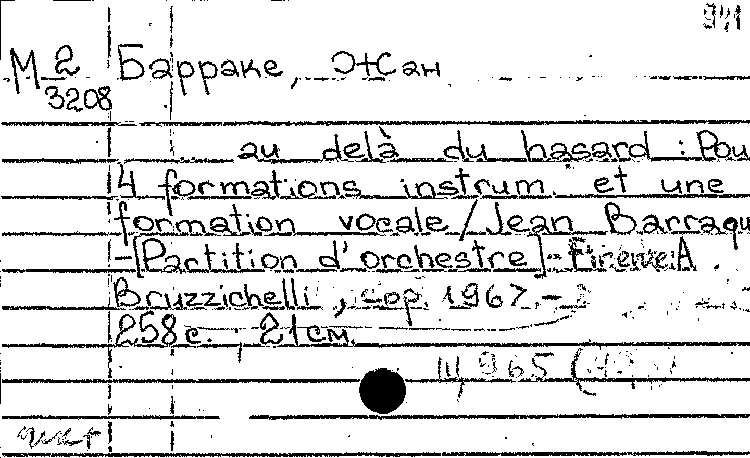 941
М 2 Барраке, Жан
3208
au delà du hasard : Pou
4 formations instrum. et une
formation vocale / Jean Barraqu
-[Partition d'orchestre]- Firenze: A.
Bruzzichelli, cop. 1967.-
258с. ; 21см.